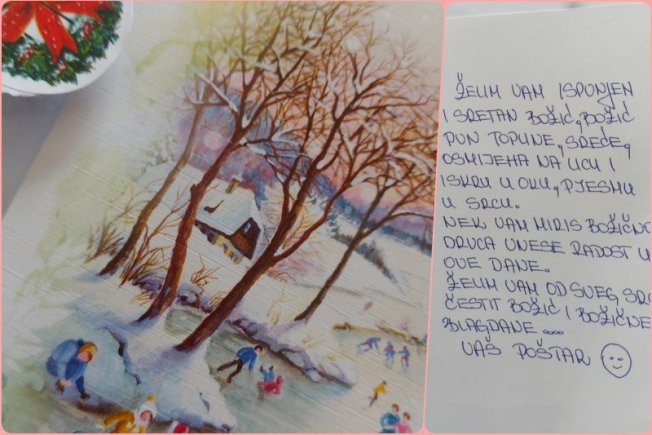 ŽELIM VAM ISPUNJEN
I SRETAN BOŽIĆ, BOŽIĆ
PUN TOPLINE, SREĆE,
OSMIJEHA NA LICU I
ISKRU U OKU, PJESMU
U SRCU.
NEK VAM MIRIS BOŽIĆNO
DRVCA UNESE RADOST U
OVE DANE.
ŽELIM VAM OD SVEG SRC
ČESTIT BOŽIĆ I BOŽIĆNE
BLAGDANE ...
VAŠ POŠTAR